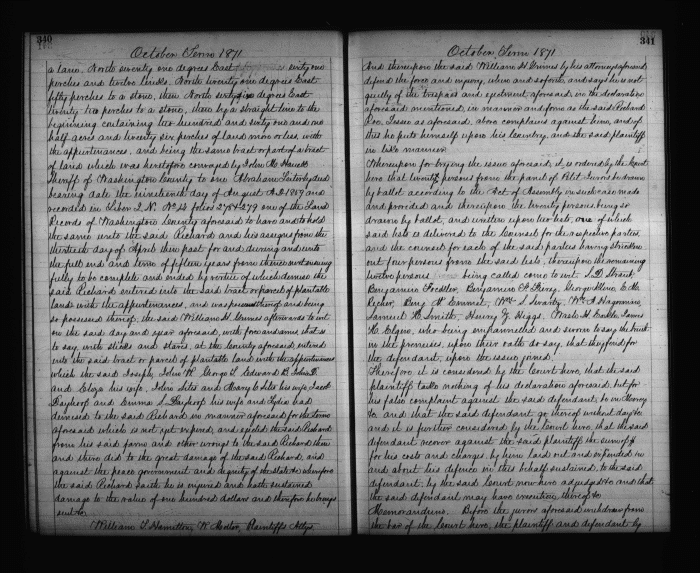 340
October Term 1871
a lane, North seventy one degrees East sixty one
perches and twelve links, North twenty one degrees East
fifty perches to a stone, then North sixty degrees East
twenty two perches to a stone, then by a straight line to the
beginning containing two hundred and sixty one and one
half acres and twenty six perches of land more or less, with
the appurtenances, and being the same tract or part of a tract
of land which was heretofore conveyed by John M. Hauck
Sheriff of Washington County to one Abraham by deed
bearing date the nineteenth day of August A.D. 1859 and
recorded in Liber I. N. No 13 folios 278 & 279 one of the Land
Records of Washington County aforesaid to have and to hold
the same unto the said Richard and his assigns from the
thirtieth day of April then past for and during and unto
the full end and term of fifteen years from thence next ensuing
fully to be complete and ended by virtue of which demise the
said Richard entered into the said tract or parcel of plantable
land with the appurtenances, and was possessed thereof and being
so possessed thereof, the said William H. Grimes afterwards to wit
on the said day and year aforesaid, with force and arms that is
to say, with sticks and staves, at the County aforesaid, entered
into the said tract or parcel of plantable land with the appurtenances
which the said Joseph, John W. George T. Edward B. John D.
and Eliza his wife, John Sites and Mary E. Sites his wife, Jacob
Fayhorp and Emma S. Fayhorp his wife and Lydia had
demised to the said Richard in manner aforesaid for the term
aforesaid which is not yet expired, and ejected the said Richard
from his said farm and other wrongs to the said Richard then
and there did to the great damage of the said Richard, and
against the peace government and dignity of the state &c wherefore
the said Richard saith he is injured and hath sustained
damage to the value of one hundred dollars and therefore he brings
suit &c.
William T. Hamilton, W. Motter, Plaintiffs Attys.
341
October Term 1871
And thereupon the said William H. Grimes by his attorney aforesaid,
defend the force and injury, when and so forth, and says he is not
guilty of the trespass and ejectment aforesaid, in the declaration
aforesaid mentioned, in manner and form as the said Richard
Roe, Lessee as aforesaid, above complains against him, and of
this he puts himself upon his Country, and the said plaintiff
in like manner.
Whereupon for trying the issue aforesaid, it is ordered by the Court
here that twenty persons from the panel of Petit Jurors be drawn
by ballot according to the Act of Assembly in such case made
and provided and thereupon the twenty persons being so
drawn by ballot, and written upon two lists, one of which
said lists is delivered to the Counsel for the respective parties,
and the counsel for each of the said parties having stricken
out four persons from the said lists, thereupon the remaining
twelve persons being called come to wit: S. D. Straub,
Benjamin Foedtler, Benjamin F. Fiery, George Kline, E. M.
Recher, Benj. H. Emmert, Wm S. Swartz, Wm A. Hagerman,
Samuel H. Smith, Henry G. Higgs, Wash. H. Eakle, James
H. Elgin, who being empannelled and sworn to say the truth
in the premises, upon their oath do say, that they find for
the defendant, upon the issue joined.
Therefore it is considered by the Court here, that the said
plaintiff take nothing of his declaration aforesaid, but for
his false complaint against the said defendant, be in Mercy
&c. and that the said defendant go thereof without day &c.
and it is further considered by the Court here, that the said
defendant recover against the said plaintiff the sum of $
for his costs and charges, by him laid out and expended in
and about his defence in this behalf sustained, to the said
defendant, by the said Court now here adjudged &c and that
the said defendant may have execution thereof &c
Memorandum. Before the jurors aforesaid withdrew from
the bar of the Court here, the plaintiff and defendant by